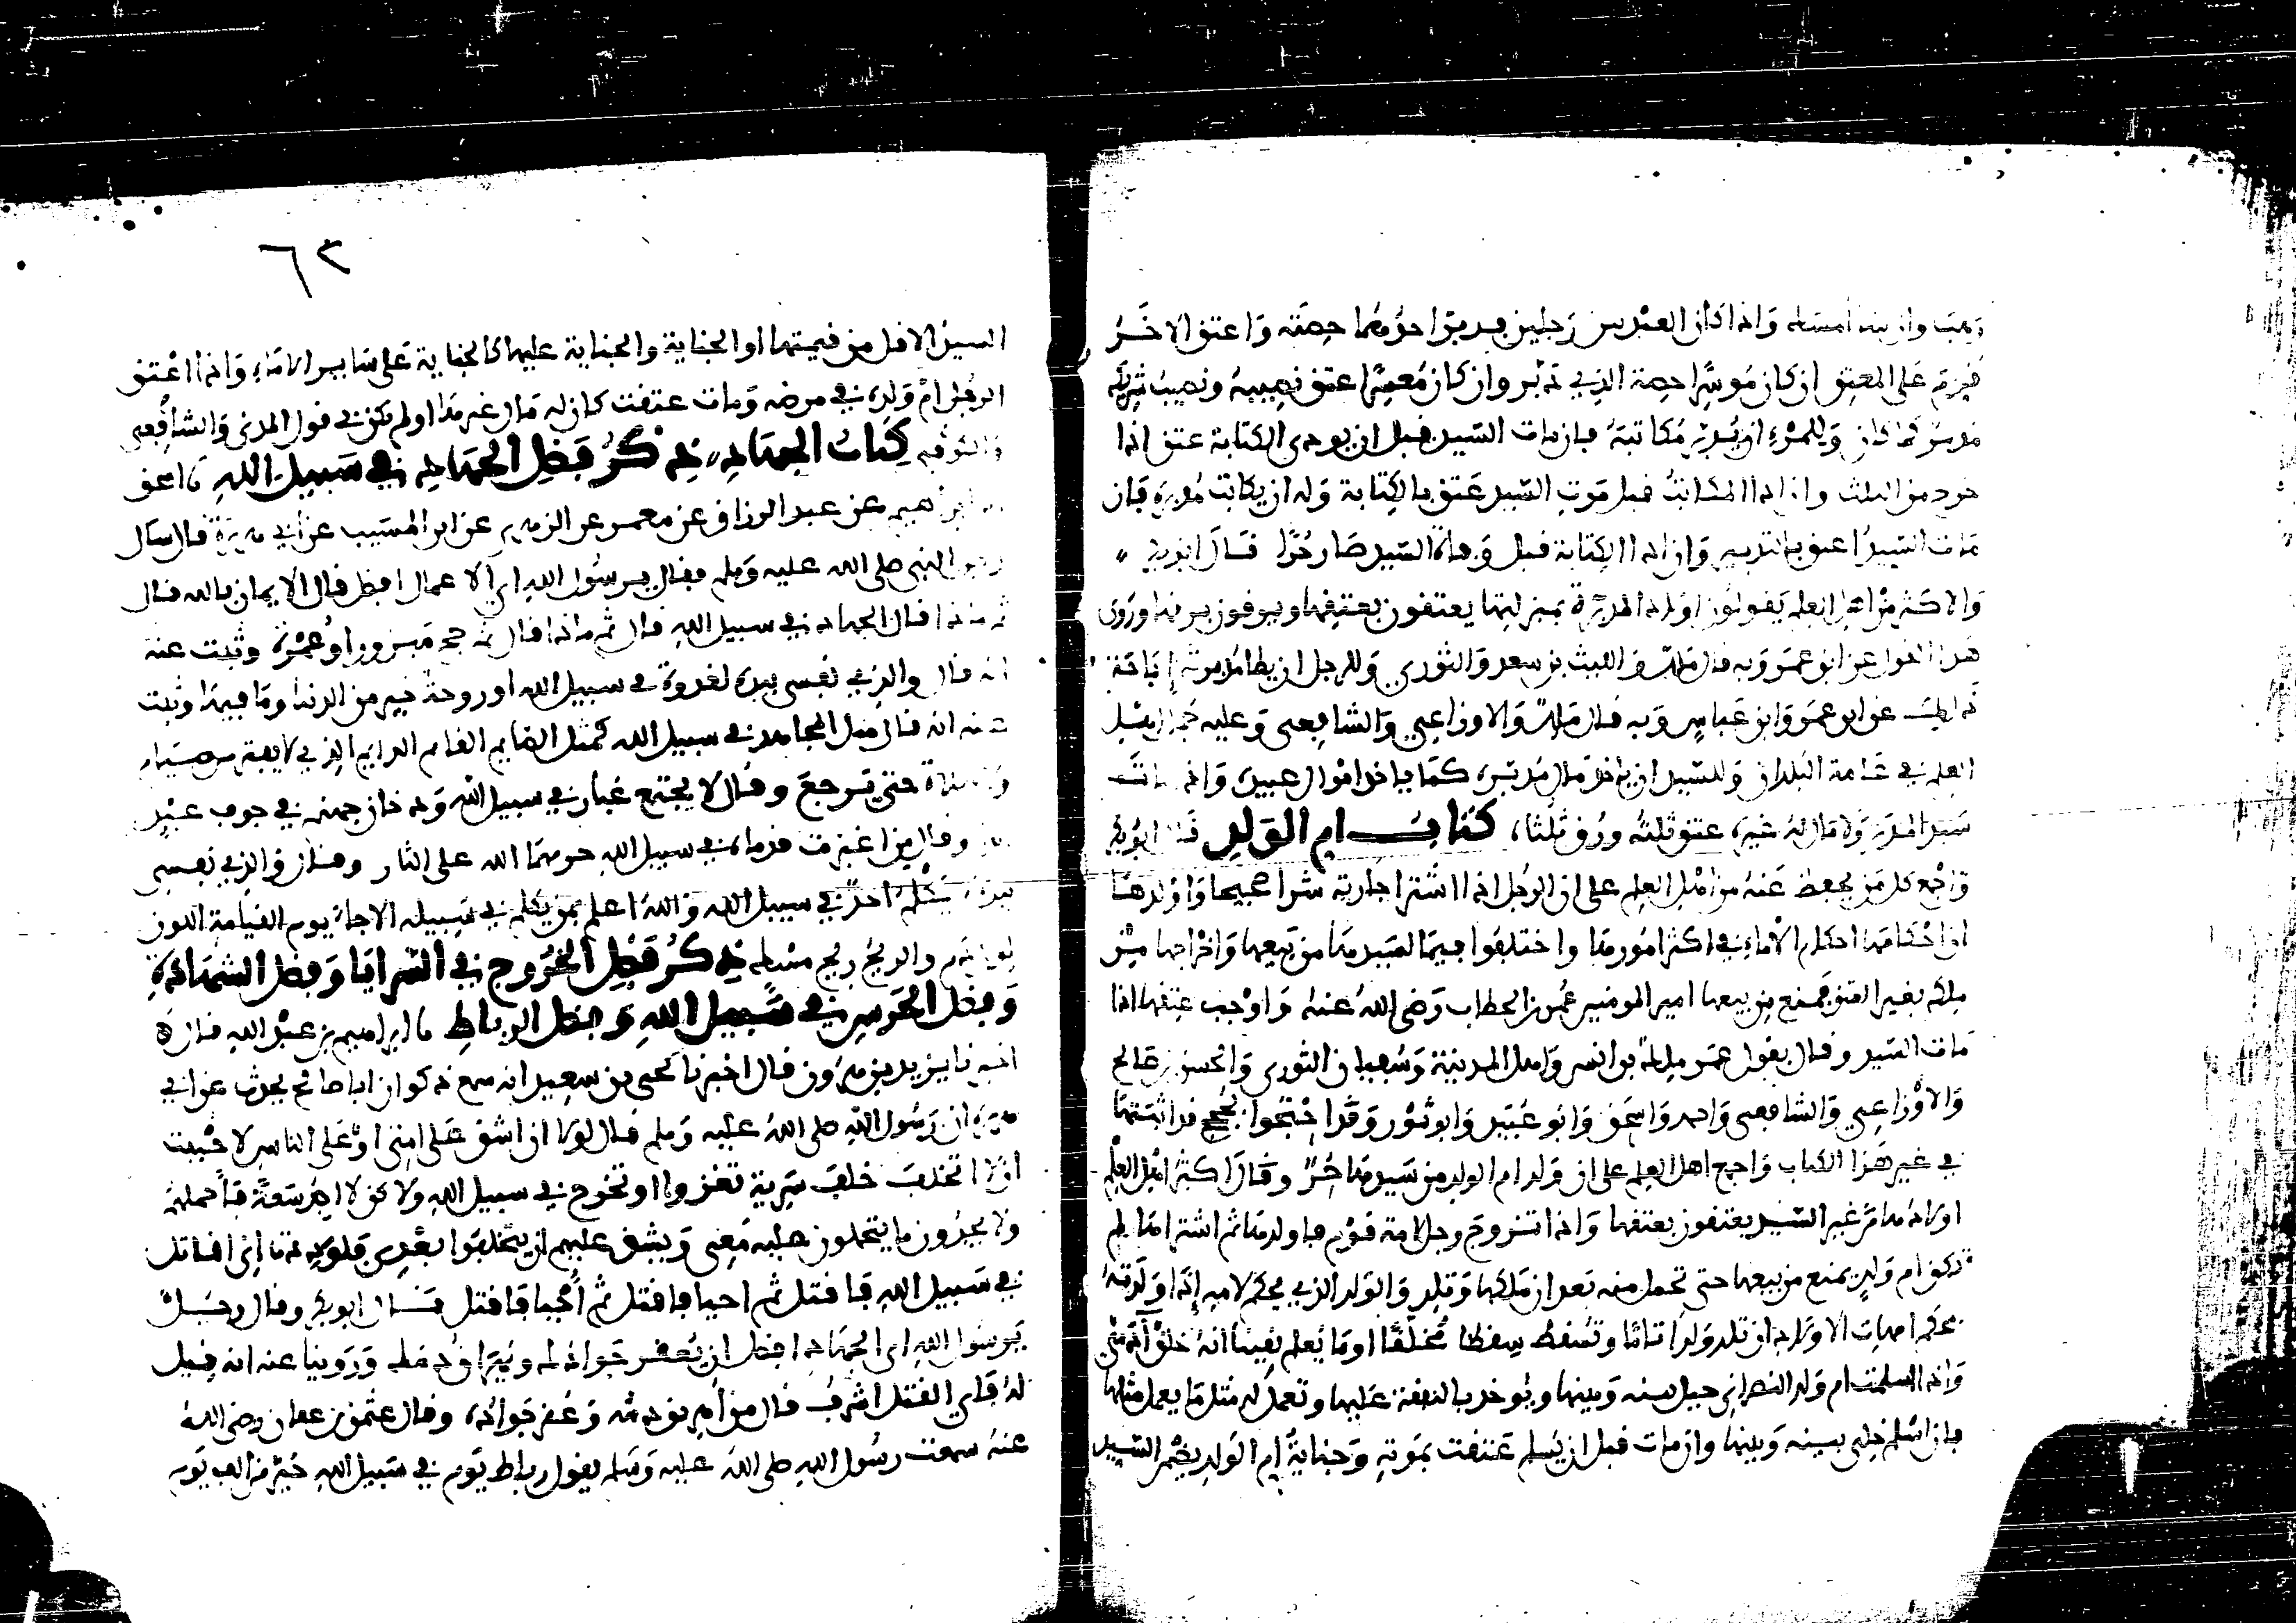 واذا كان العبد بين رجلين فدبر احدهما حصته واعتق الاخر
قوم على المعتق ان كان موسرا حصة الذي دبر وان كان معسرا عتق نصيبه ونصيب شريكه
مدبر كما كان وللمرء ان يدبر مكاتبه فان مات السيد قبل ان يودى الكتابة عتق اذا
خرج من الثلث وان ادا المكاتب قبل موت السيد عتق بالكتابة وله ان يكاتب مدبره فان
مات السيد عتق بالتدبير وان ادا الكتابة قبل وفاة السيد صار حرا قال ابو بكر
والاكثر من اهل العلم يقولون اولاد المدبرة بمنزلتها يعتقون بعتقها ويرقون برقها وروى
هذا القول عن ابن عمر وبه قال ملك والليث بن سعد والثوري وللرجل ان يطا مدبرته اباحة
ذلك عن ابن عمر وابن عباس وبه قال ملك والاوزاعي والشافعي وعليه اهل
العلم في عامة البلدان وللسيد ان ياخذ مال مدبره كما ياخذ اموال عبيده واذا مات
سيد المدبر ولا مال له غيره عتق ثلثه ورق ثلثاه كتاب ام الولد قال ابو بكر
واجمع كل من يحفظ عنه من اهل العلم على ان الرجل اذا اشترا جارية شرا صحيحا واولدها
ان احكامها احكام الاماء في اكثر امورها واختلفوا فيما لسيدها من بيعها واخراجها من
ملكه بغير العتق فمنع من بيعها امير المومنين عمر بن الخطاب رضي الله عنه واوجب عتقها اذا
مات السيد وقال بقول عمر ملك بن انس واهل المدينة وسفيان الثوري والحسن بن صالح
والاوزاعي والشافعي واحمد واسحق وابو عبيد وابو ثور وقد احتجوا بحجج قد اثبتها
في غير هذا الكتاب واجمع اهل العلم على ان ولد ام الولد من سيدها حر وقال اكثر اهل العلم
اولادها من غير السيد يعتقون بعتقها واذا تزوج رجل امة قوم فاولدها ثم اشتراها لم
تكن ام ولد يمنع من بيعها حتى تحمل منه بعد ان ملكها وتلد والولد الذي يحكم لامه اذا ولدته
بحكم امهات الاولاد ان تلد ولدا تاما وتسقط سقطا مخلقا او ما يعلم يقينا انه خلق آدمي
واذا اسلمت ام ولد النصراني حيل بينه وبينها ويوخذ بالنفقة عليها وتعمل له مثل ما يعمل مثلها
فان اسلم خلي بينه وبينها وان مات قبل ان يسلم عتقت بموته وجناية ام الولد يضمن السيد
٦٢
السيد الاقل من قيمتها او الجناية والجناية عليها كالجناية على ساير الاماء واذا اعتق
الرجل ام ولده في مرضه ومات عتقت كان له مال غيرها او لم يكن في قول المدني والشافعي
والكوفي كتاب الجهاد ذكر فضل الجهاد في سبيل الله نا اسحق
بن ابراهيم عن عبد الرزاق عن معمر عن الزهري عن ابن المسيب عن ابي هريرة قال سال
رجل النبي صلى الله عليه وسلم فقال يرسول الله اي الاعمال افضل قال الايمان بالله قال
ثم ماذا قال الجهاد في سبيل الله قال ثم ماذا قال ثم حج مبرور او عمرة وثبت عنه
انه قال والذي نفسي بيده لغدوة في سبيل الله او روحة خير من الدنيا وما فيها وثبت
عنه انه قال مثل المجاهد في سبيل الله كمثل القايم الدايم الذي لا يفتر من صيام
ولا صلاة حتى يرجع وقال لا يجتمع غبار في سبيل الله ودخان جهنم في جوف عبد
وقال من اغبرت قدماه في سبيل الله حرمهما الله على النار وقال والذي نفسي
بيده لا يكلم احد في سبيل الله والله اعلم بمن يكلم في سبيله الا جاء يوم القيامة اللون
لون دم والريح ريح مسك ذكر فضل الخروج في السرايا وفضل الشهادة
وفضل الحرس في سبيل الله وفضل الرباط نا ابراهيم بن عبد الله قال نا
اخبرنا يزيد بن هرون قال اخبرنا يحيى بن سعيد انه سمع ذكوان ابا صالح يحدث عن ابي
هريرة ان رسول الله صلى الله عليه وسلم قال لولا ان اشق على امتى او على الناس لاحببت
ان لا اتخلف خلف سرية تغزوا او تخرج في سبيل الله ولاكن لا اجد سعة فاحملهم
ولا يجدون ما يتحملون عليه معي ويشق عليهم ان يتخلفوا بعدي فلوددت اني اقاتل
في سبيل الله فاقتل ثم احيا فاقتل ثم احيا فاقتل قال ابو بكر وقال رجل
يرسول الله اي الجهاد افضل ان يعقر جواده ويهراق دمه وروينا عنه انه قيل
له فاي القتل اشرف قال من اهريق دمه وعقر جواده وقال عثمن بن عفان رضي الله
عنه سمعت رسول الله صلى الله عليه وسلم يقول رباط يوم في سبيل الله خير من الف يوم